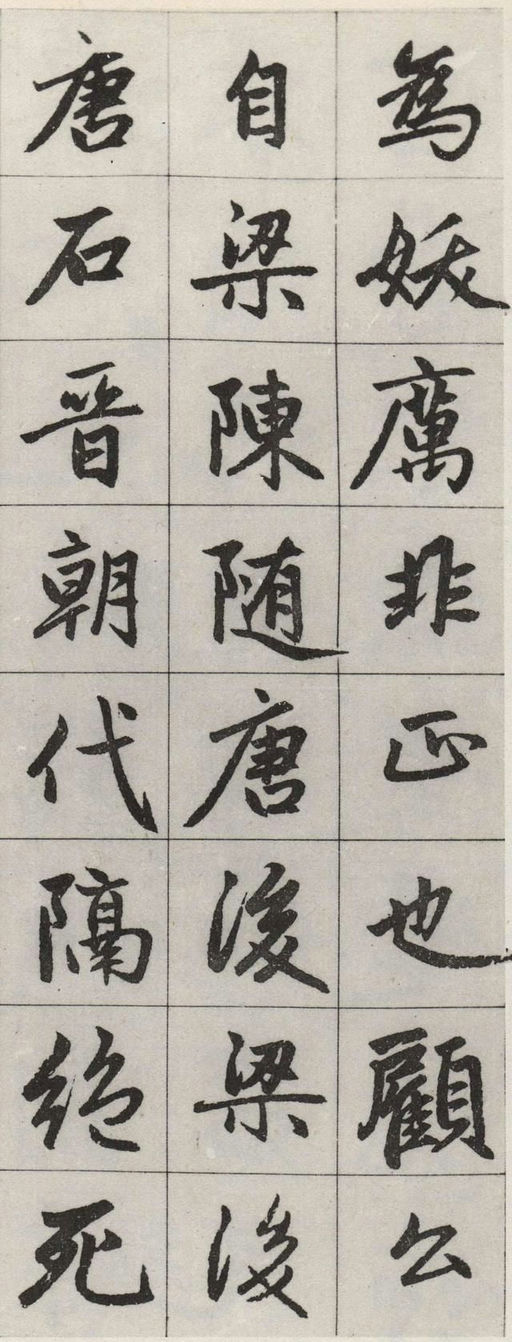 為妖厲非正也顧公
自梁陳随唐後梁後
唐石晉朝代隔絶死